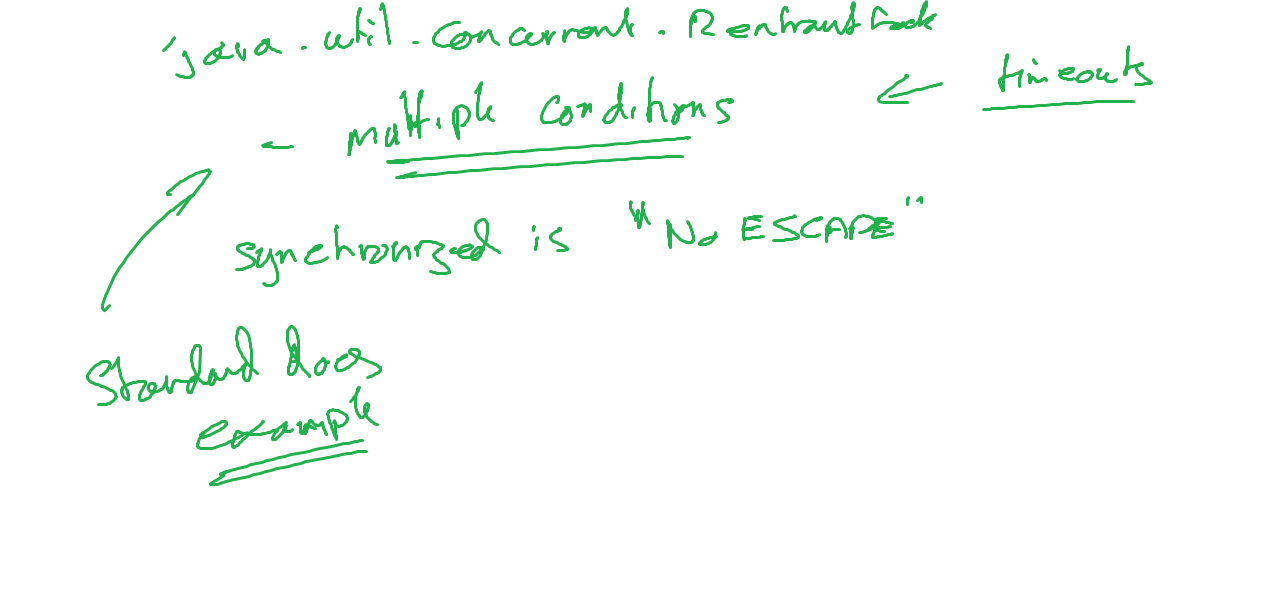 java.util.concurrent.Rentrantlock
timeouts
- multiple conditions
synchronized is "No ESCAPE"
Standard docs
example